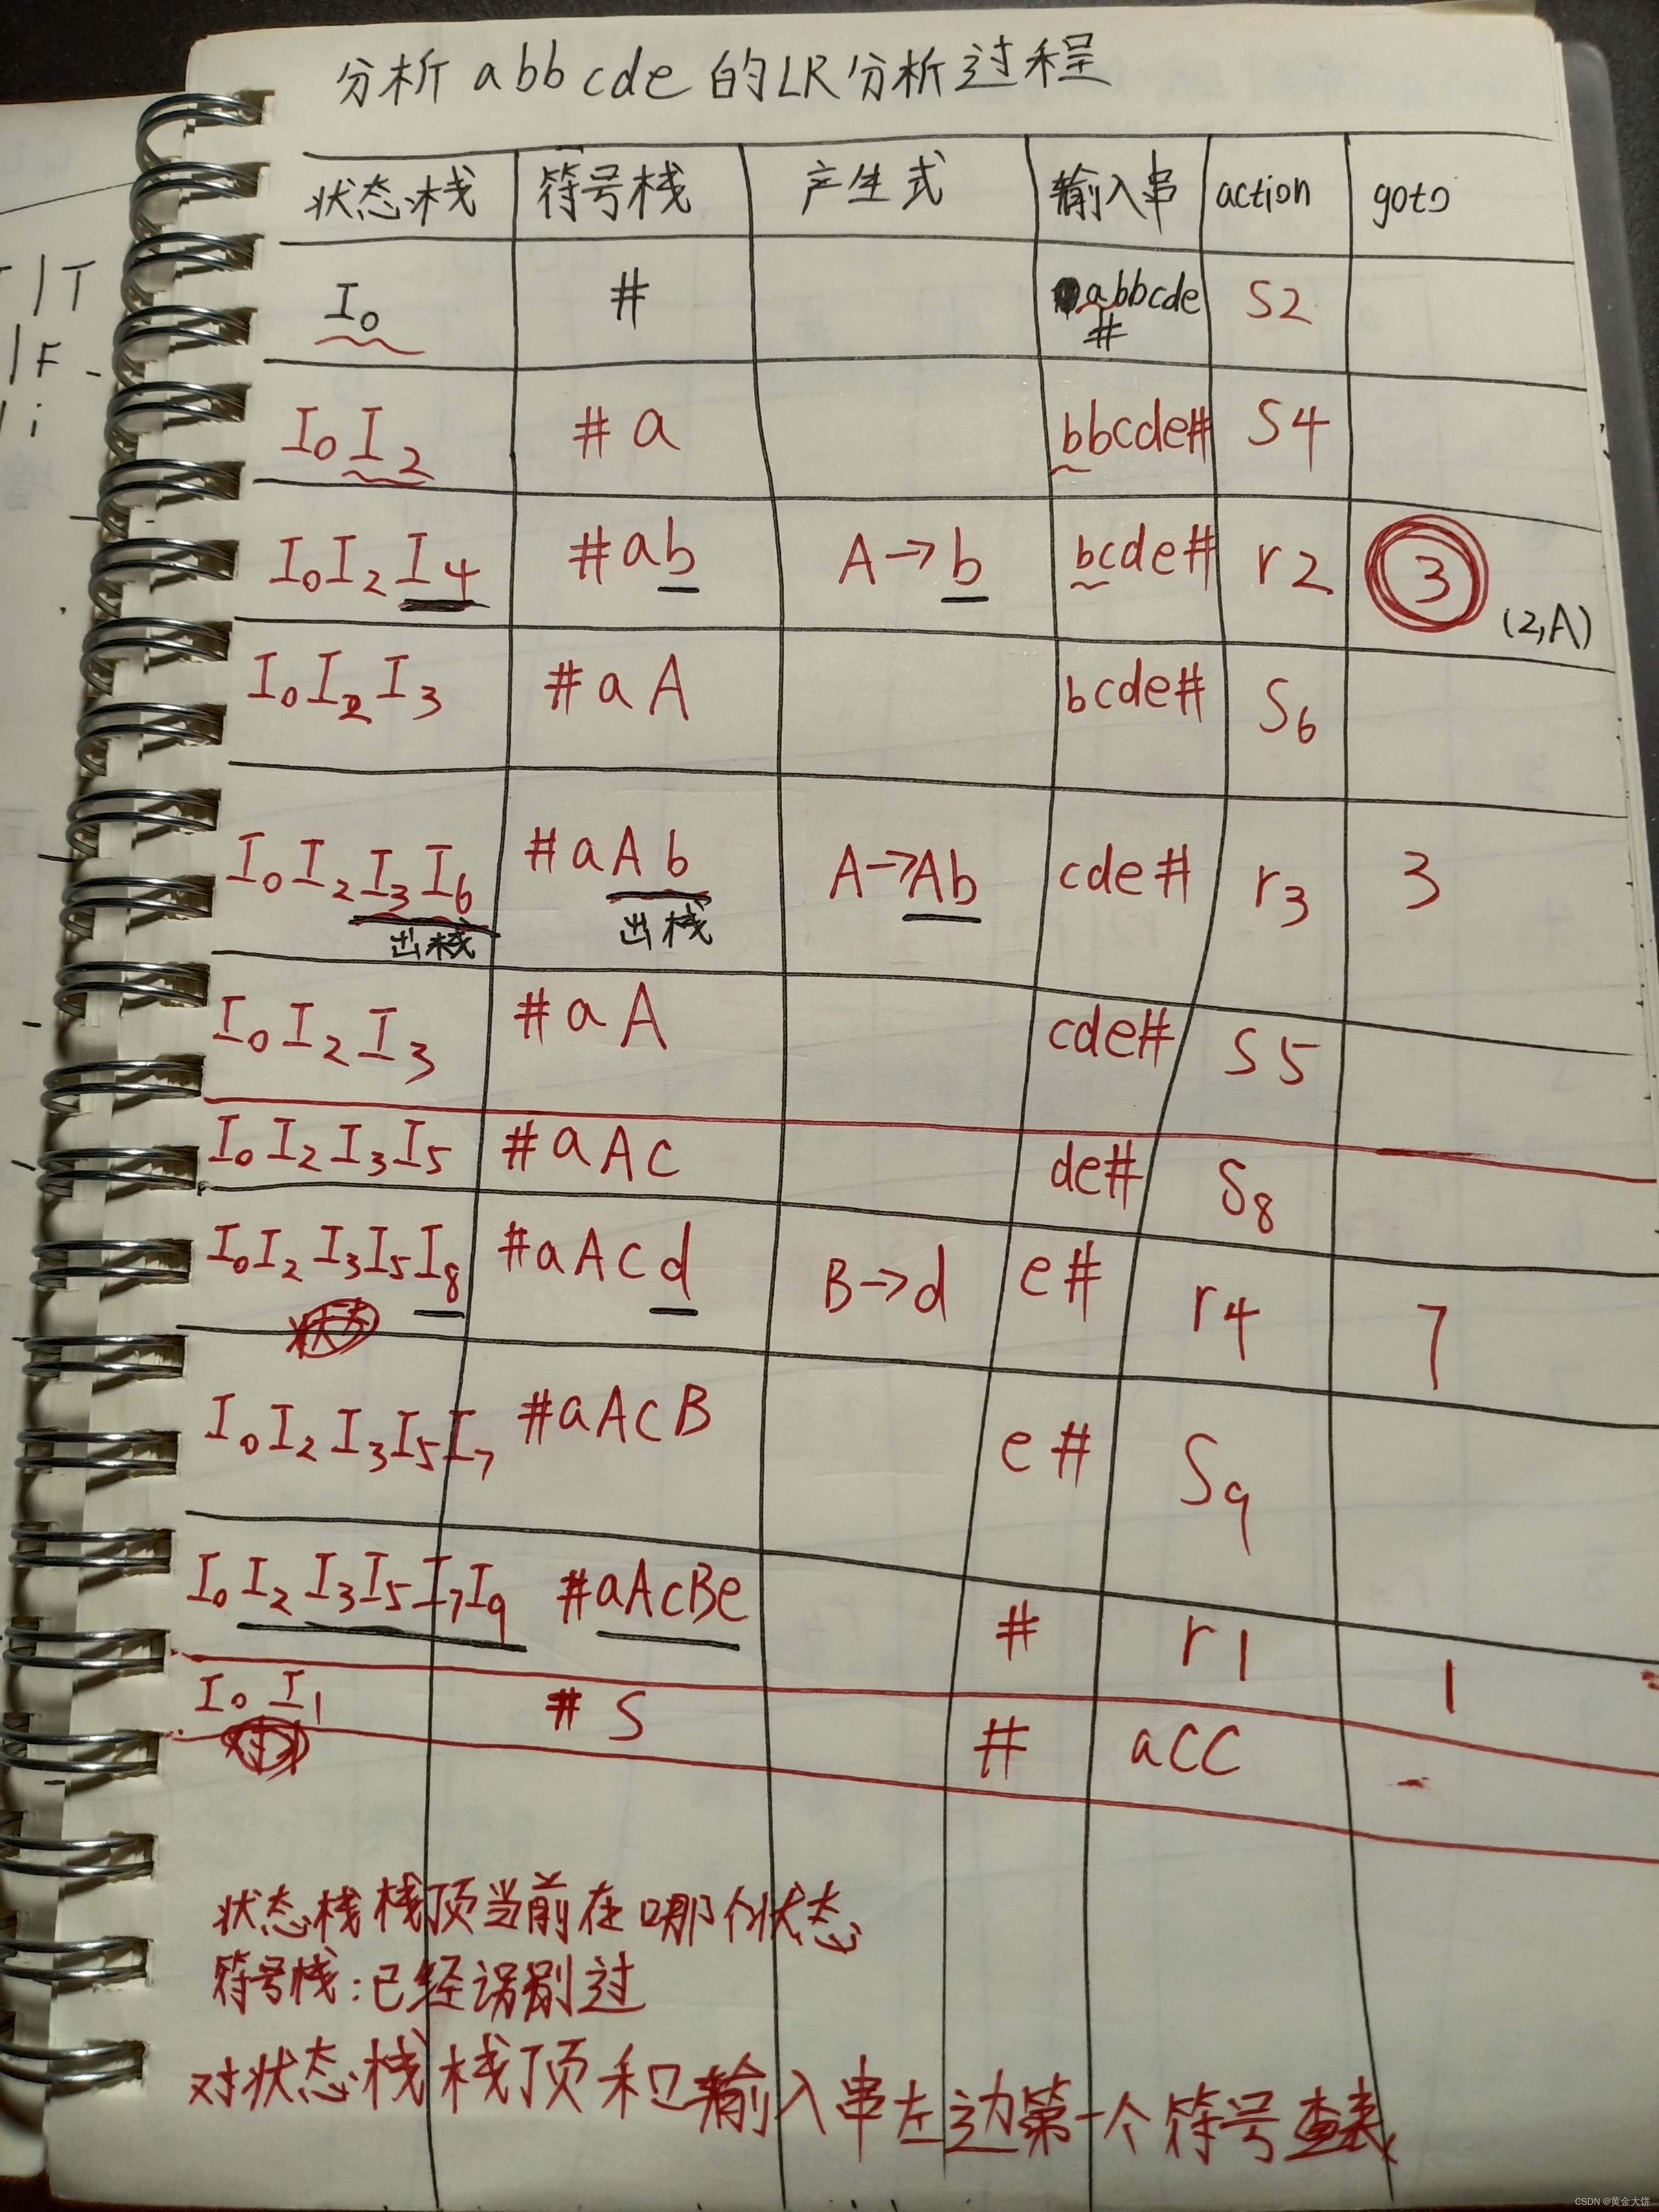 分析abbcde的LR分析过程
状态栈 符号栈 产生式 输入串 action goto
I0 # abbcde# S2
I0I2 #a bbcde# S4
I0I2I4 #ab A→b bcde# r2 3 (2,A)
I0I2I3 #aA bcde# S6
I0I2I3I6 #aAb A→Ab cde# r3 3
出栈 出栈
I0I2I3 #aA cde# S5
I0I2I3I5 #aAc de# S8
I0I2I3I5I8 #aAcd B→d e# r4 7
I0I2I3I5I7 #aAcB e# S9
I0I2I3I5I7I9 #aAcBe # r1 1
I0I1 #S # acc
状态栈栈顶当前在哪个状态
符号栈:已经识别过
对状态栈栈顶和输入串左边第一个符号查表
T/T
/F
/i
CSDN @黄金大饼